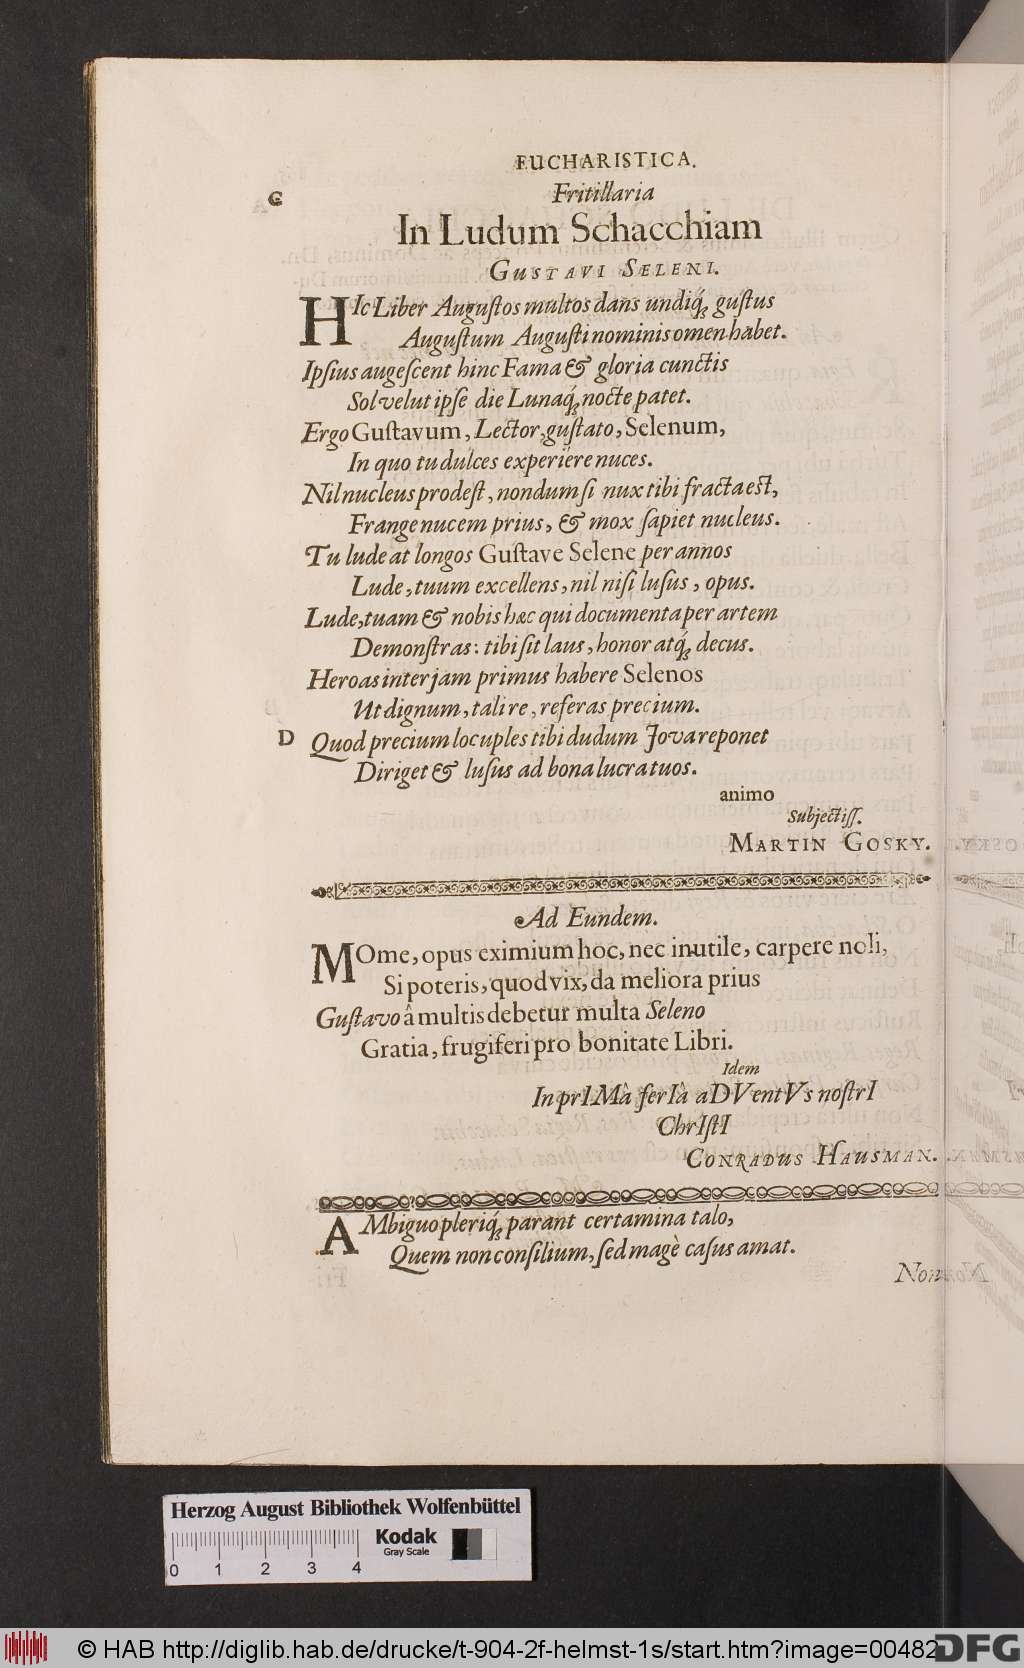 EUCHARISTICA.
Fritillaria
C
In Ludum Schacchiam
GUSTAVI SELENI.
HIc Liber Auguſtos multos dans undiq; guſtus
Auguſtum Auguſti nominis omen habet.
Ipſius augeſcent hinc Fama & gloria cunctis
Sol velut ipſe die Lunaq; nocte patet.
Ergo Guſtavum, Lector, guſtato, Selenum,
In quo tu dulces experiere nuces.
Nil nucleus prodeſt, nondum ſi nux tibi fracta est,
Frange nucem prius, & mox ſapiet nucleus.
Tu lude at longos Guſtave Selene per annos
Lude, tuum excellens, nil niſi luſus, opus.
Lude, tuam & nobis hæc qui documenta per artem
Demonſtras: tibi ſit laus, honor atq; decus.
Heroas inter jam primus habere Selenos
Ut dignum, tali re, referas precium.
D Quod precium locuples tibi dudum Jova reponet
Diriget & luſus ad bona lucra tuos.
animo
Subjectiſſ.
MARTIN GOSKY.
Ad Eundem.
MOme, opus eximium hoc, nec inutile, carpere noli,
Si poteris, quod vix, da meliora prius
Guſtavo â multis debetur multa Seleno
Gratia, frugiferi pro bonitate Libri.
Idem
In prIMà ferIà aDVentVs noſtrI
ChrIſtI
CONRADUS HAUSMAN.
AMbiguo pleriq; parant certamina talo,
Quem non conſilium, ſed magè caſus amat.
Non
Herzog August Bibliothek Wolfenbüttel
Kodak
Gray Scale
0 1 2 3 4
© HAB http://diglib.hab.de/drucke/t-904-2f-helmst-1s/start.htm?image=00482
DFG